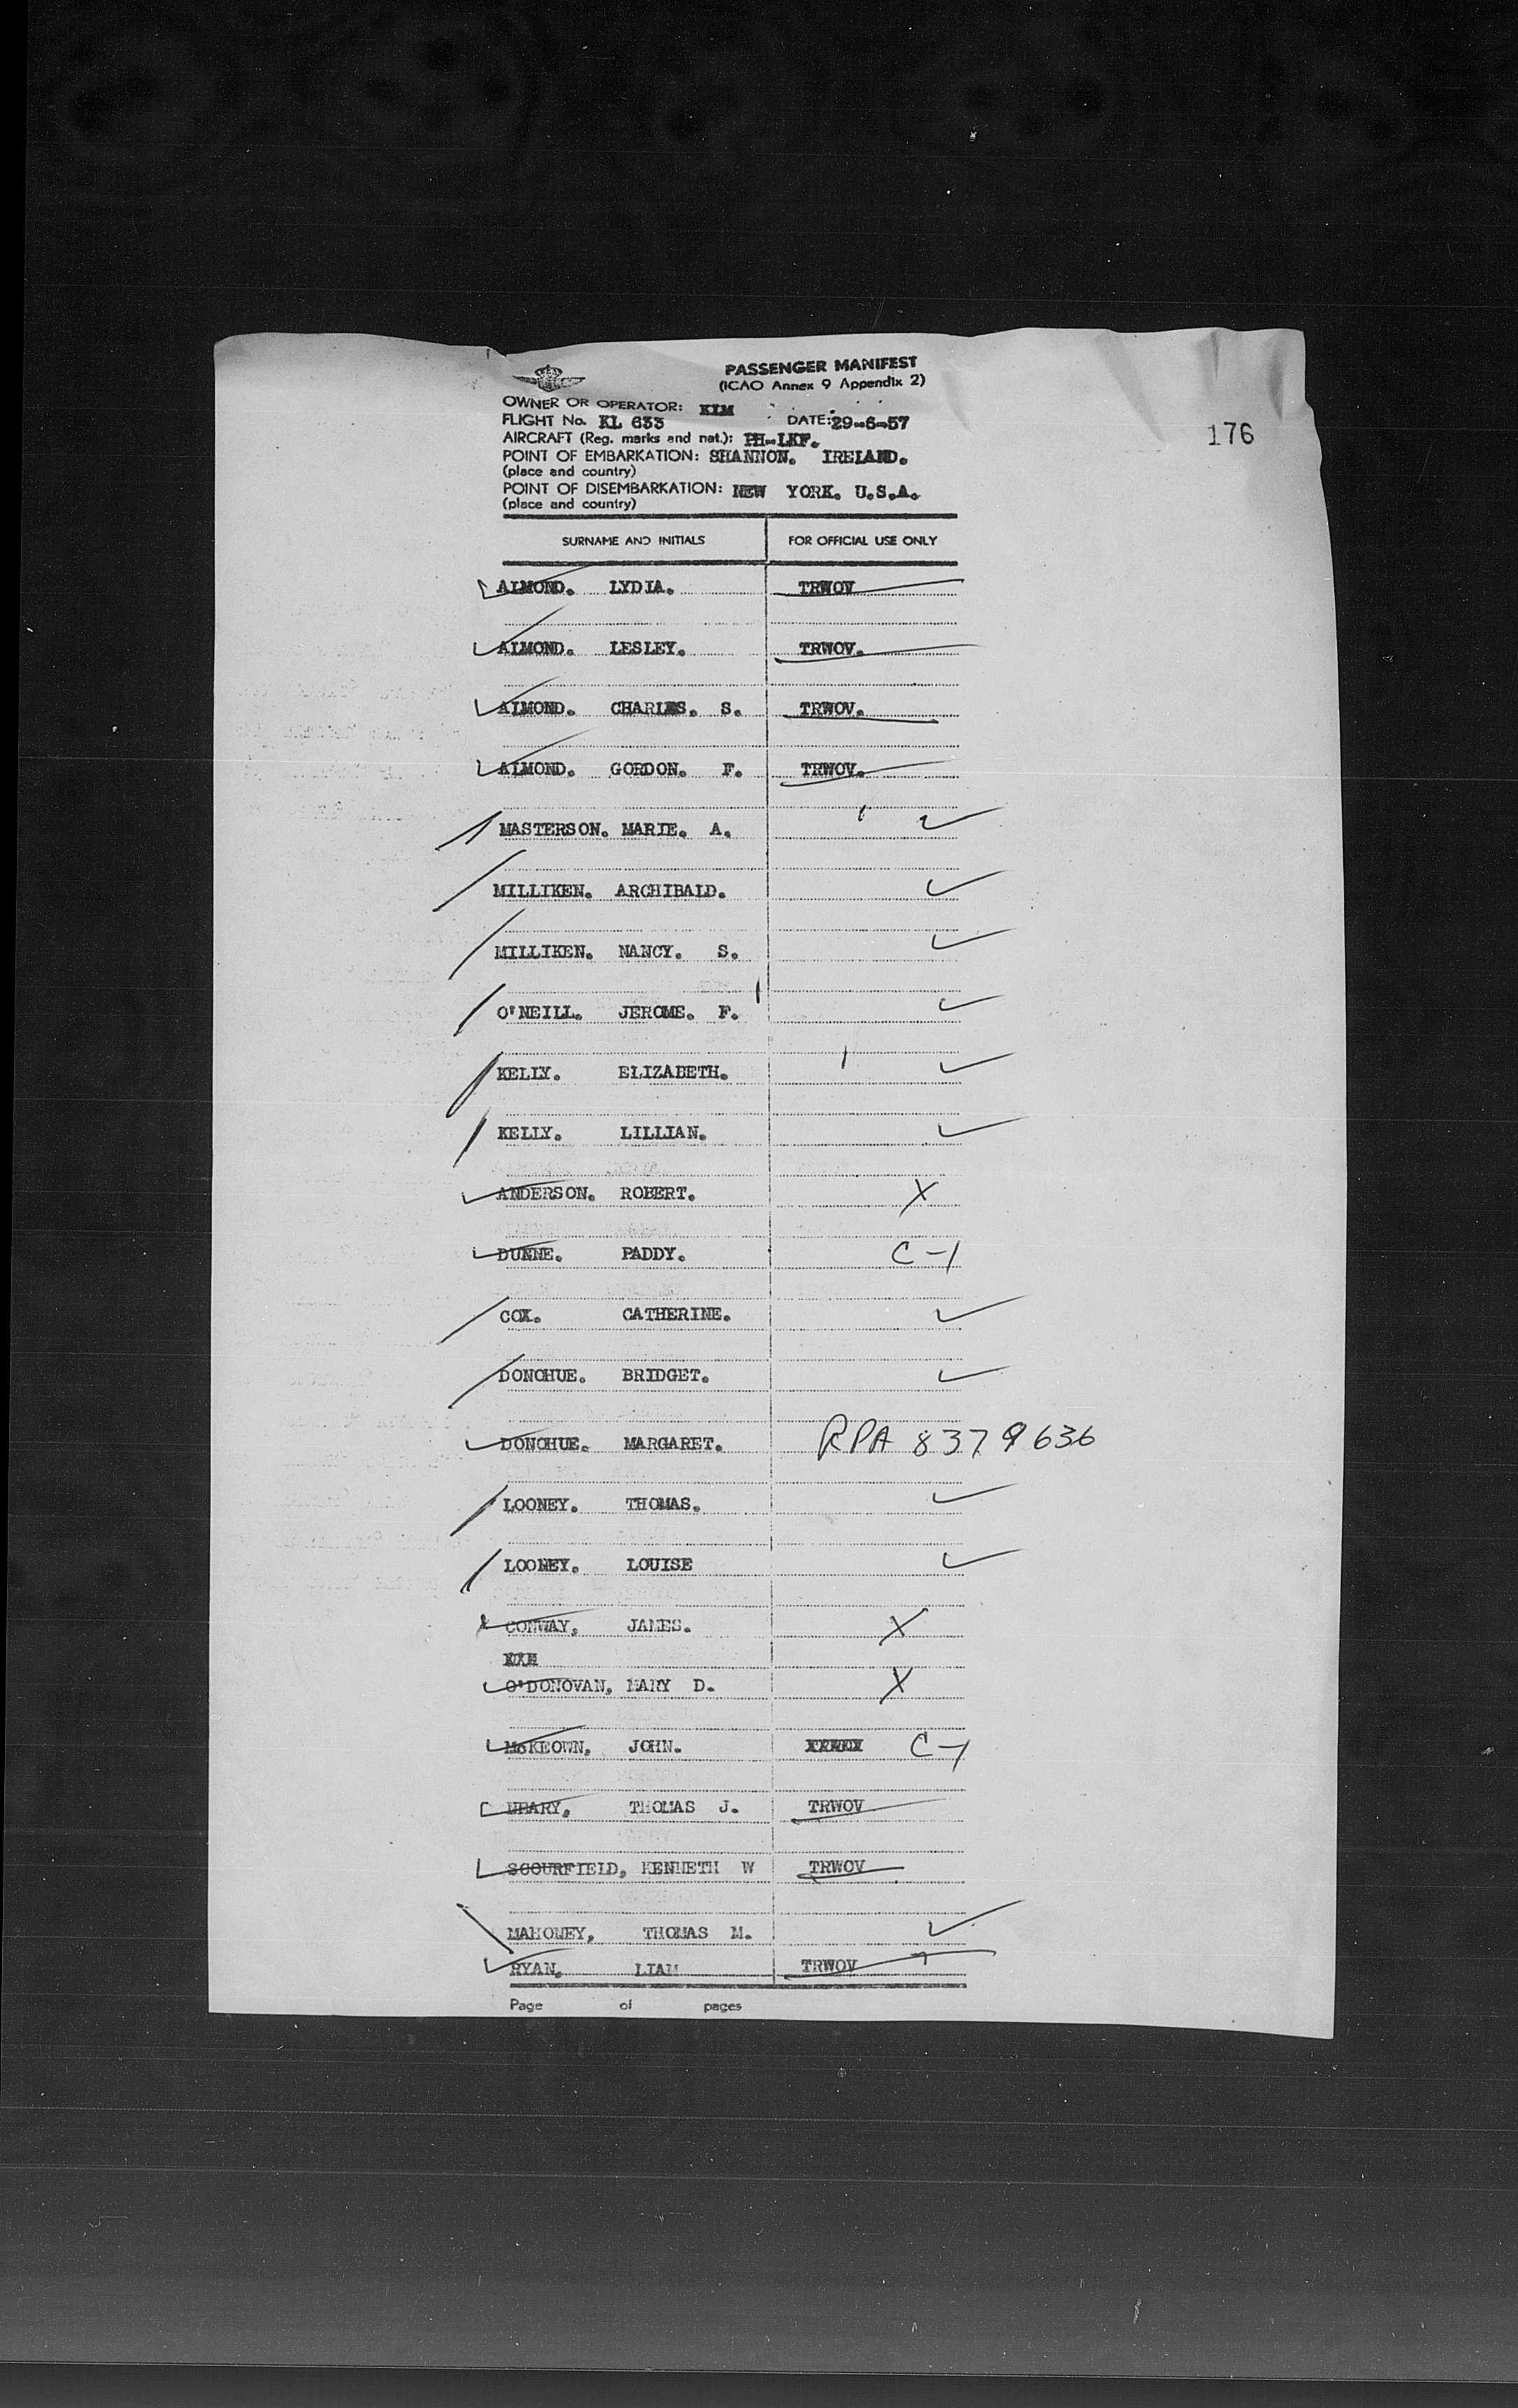 PASSENGER MANIFEST
(ICAO Annex 9 Appendix 2)
OWNER OR OPERATOR: KLM
FLIGHT No. KL 633 DATE: 29-6-57
176
AIRCRAFT (Reg. marks and nat.): PH-LKF.
POINT OF EMBARKATION: SHANNON. IRELAND.
(place and country)
POINT OF DISEMBARKATION: NEW YORK. U.S.A.
(place and country)
SURNAME AND INITIALS FOR OFFICIAL USE ONLY
ALMOND. LYDIA. TRWOV
ALMOND. LESLEY. TRWOV.
ALMOND. CHARLES. S. TRWOV.
ALMOND. GORDON. F. TRWOV.
MASTERSON. MARIE. A. ✓
MILLIKEN. ARCHIBALD. ✓
MILLIKEN. NANCY. S. ✓
O'NEILL. JEROME. F. ✓
KELLY. ELIZABETH. ✓
KELLY. LILLIAN. ✓
ANDERSON. ROBERT. X
DUNNE. PADDY. C-1
COX. CATHERINE. ✓
DONOHUE. BRIDGET. ✓
DONOHUE. MARGARET. RPA 8379636
LOONEY. THOMAS. ✓
LOONEY. LOUISE ✓
CONWAY, JAMES. X
O'DONOVAN, MARY D. X
McKEOWN, JOHN. C-1
NEARY, THOMAS J. TRWOV
SCOURFIELD, KENNETH W TRWOV
MAHONEY, THOMAS M. ✓
RYAN, LIAM TRWOV
Page of pages